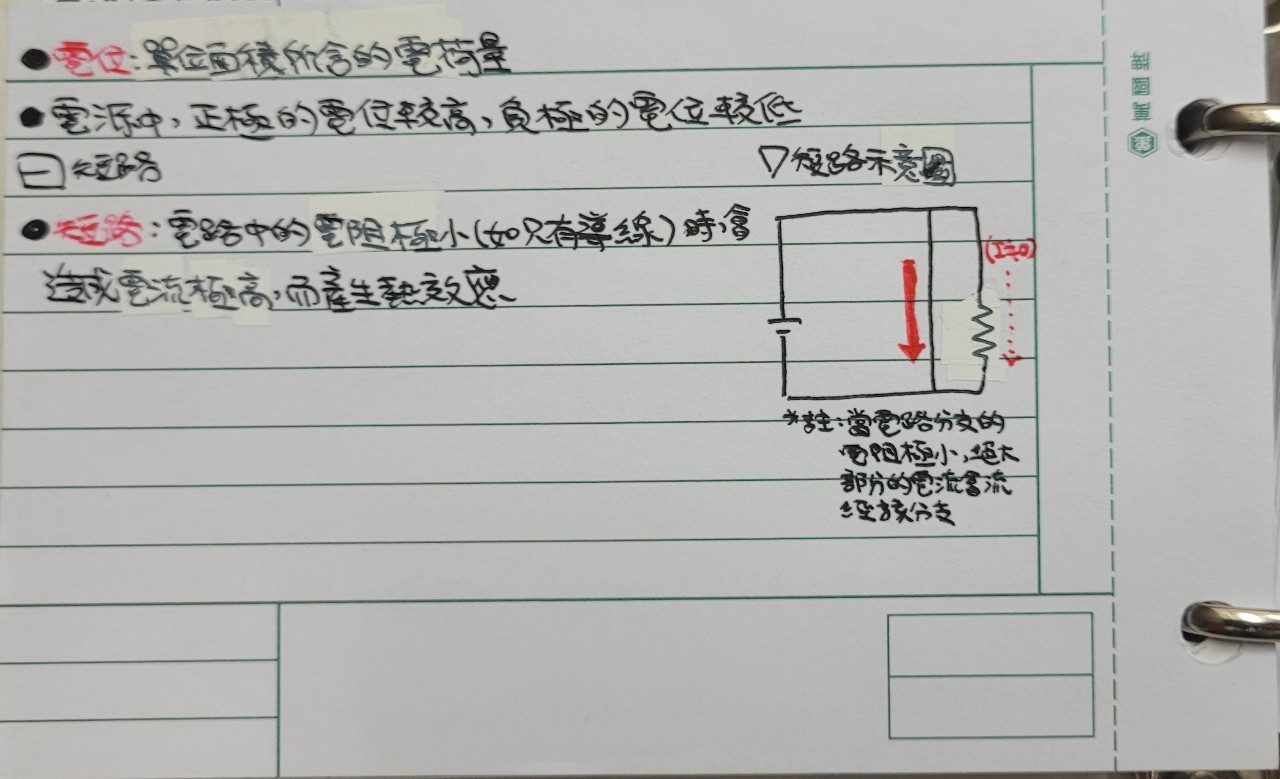 ●電位:單位面積所含的電荷量
●電源中,正極的電位較高,負極的電位較低
日短路
▽短路示意圖
●短路:電路中的電阻極小(如只有導線)時,會
造成電流極高,而產生熱效應
(I≒0)
*註:當電路分支的
電阻極小,絕大
部分的電流會流
經該分支